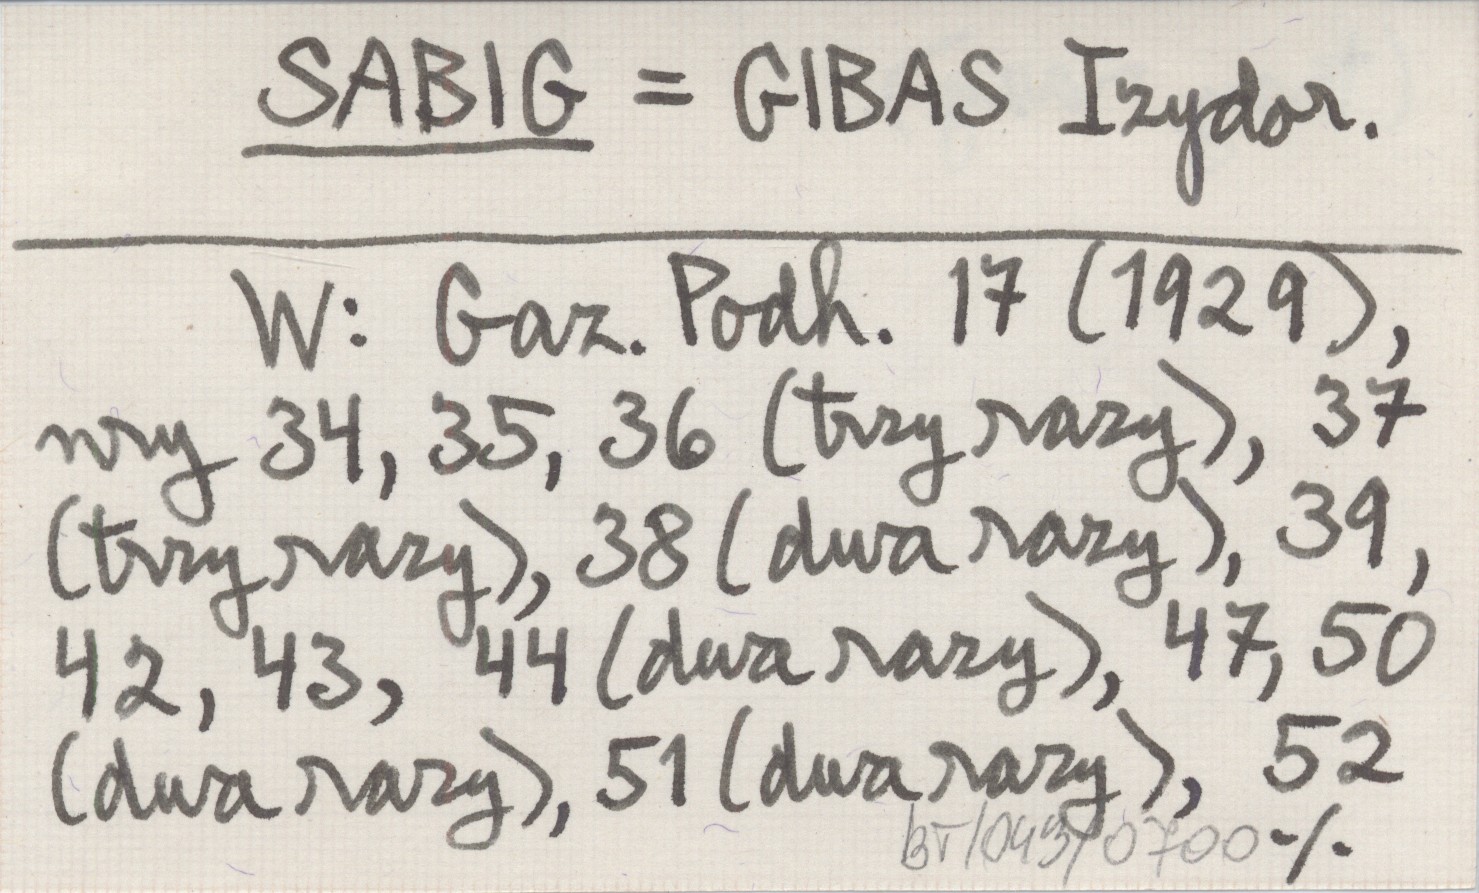 SABIG = GIBAS Izydor.
W: Gaz. Podh. 17 (1929),
nry 34, 35, 36 (trzy razy), 37
(trzy razy), 38 (dwa razy), 39,
42, 43, 44 (dwa razy), 47, 50
(dwa razy), 51 (dwa razy), 52
br/043/0700 -/.